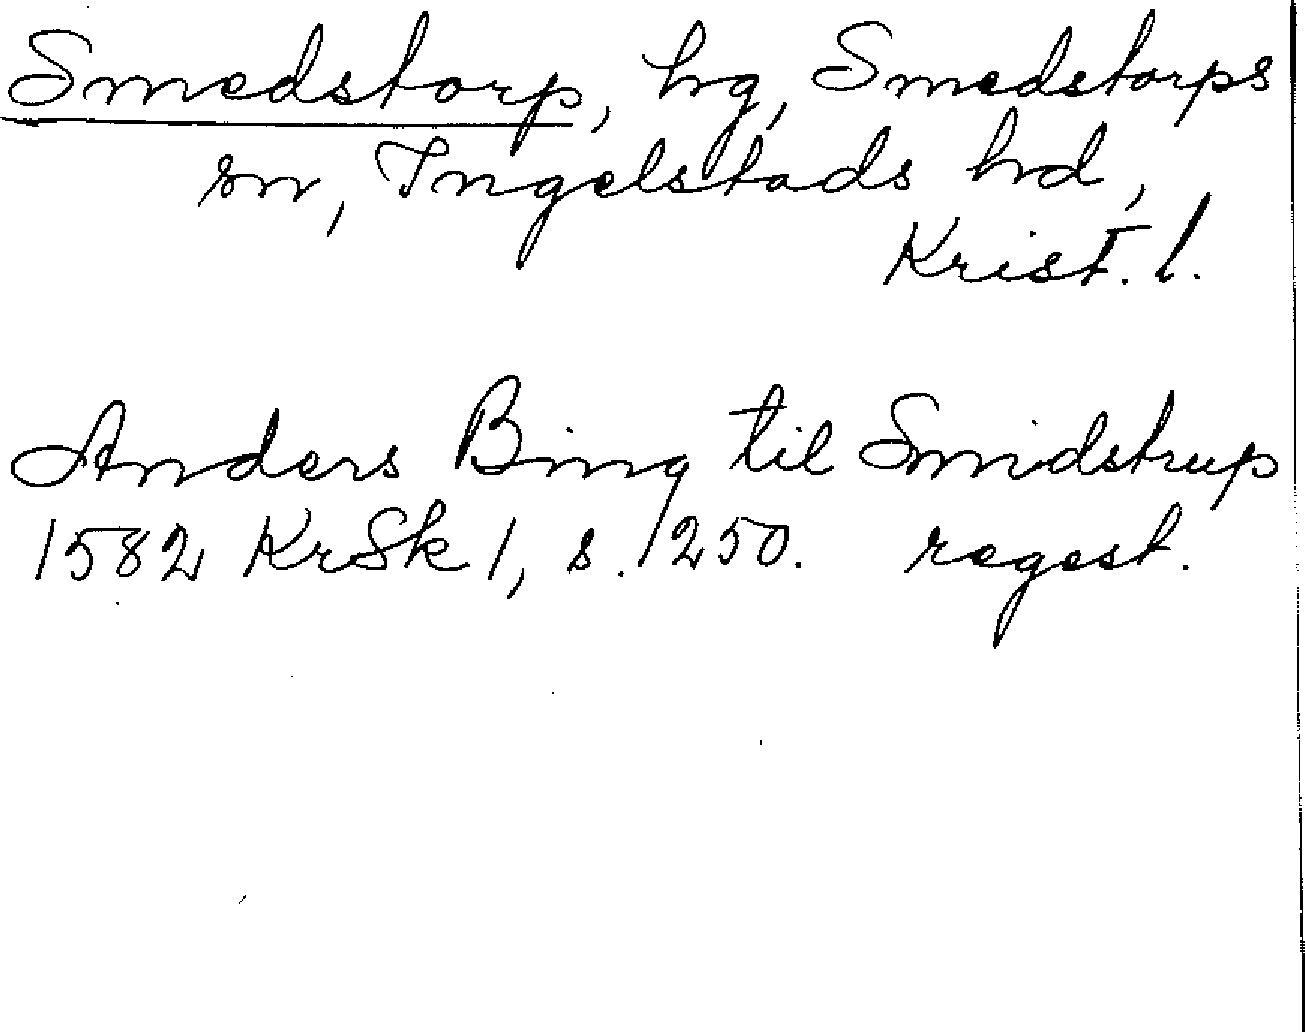 Smedstorp, hg, Smedstorps
sn, Ingelstads hd,
Krist. l.
Anders Bing til Smidstrup
1582 KrSk 1, s. 250. regest.